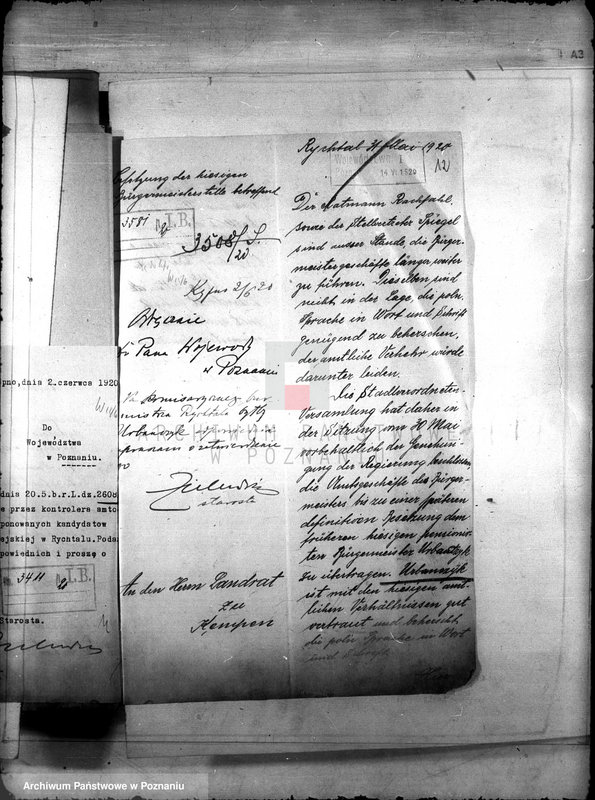 A3
Rychtal 31 Mai 1920
12
14 VI 1920
Besetzung der hiesigen
Bürgermeisterstelle betreffend
3581
I.B.
3508/S.
20
Kępno 2/6 20
Pana Wojewody
w Poznaniu
starosta
An den Herrn Landrat
zu
Kempen
Der Amtmann Rachfahl,
sowie der Stellvertreter Spiegel
sind ausser Stande, die Bürger-
meistergeschäfte länger weiter
zu führen. Dieselben sind
nicht in der Lage, die poln.
Sprache in Wort und Schrift
genügend zu beherschen,
der amtliche Verkehr würde
darunter leiden.
Die Stadtverordneten-
Versamlung hat daher in
der Sitzung am 30 Mai
vorbehaltlich der Genehmi-
gung der Regierung beschlossen,
die Amtsgeschäfte des Bürger-
meisters bis zu einer späteren
definitiven Besetzung dem
früheren hiesigen pensionir-
ten Bürgermeister Urbanczyk
zu übertragen. Urbanczyk
ist mit den hiesigen amt-
lichen Verhältnissen gut
vertraut und beherscht
die poln. Sprache in Wort
und Schrift
pno, dnia 2.czerwca 1920
Do
Województwa
w Poznaniu.
dnia 20.5.b.r.L.dz.2608
e przez kontrolera
ponowanych kandydatów
ejskiej w Rychtalu.Poda
powiednich i proszę o
3411
I.B.
Starosta.
ARCHIWUM PAŃSTWOWE
W POZNANIU
Archiwum Państwowe w Poznaniu